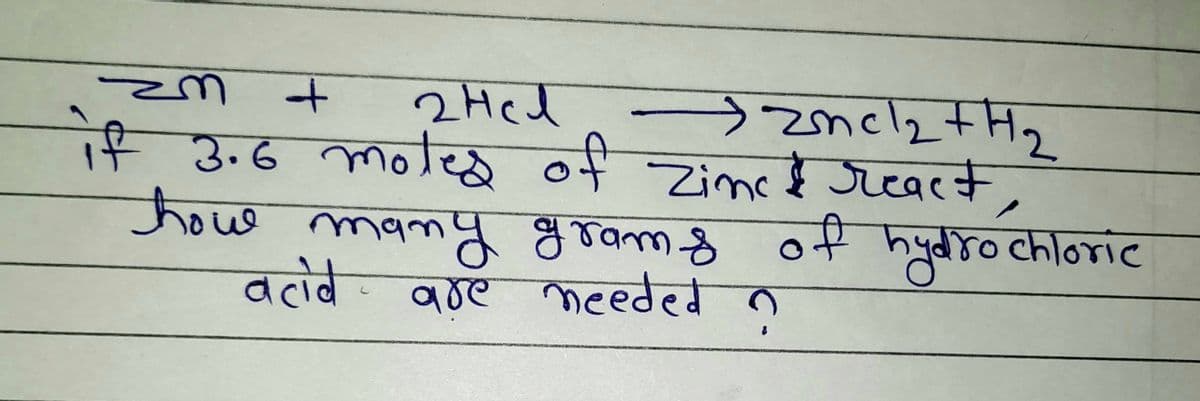 Zn + 2Hcl → Zncl2 + H2
if 3.6 moles of zinc react,
how many grams of hydrochloric
acid are needed ?